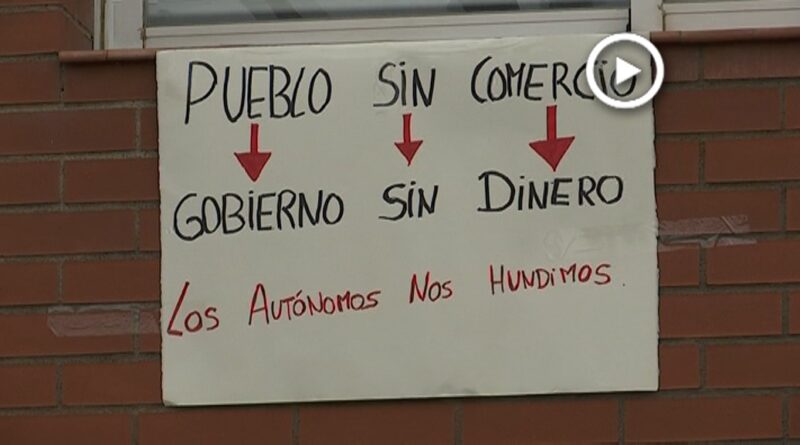 PUEBLO SIN COMERCIO
GOBIERNO SIN DINERO
LOS AUTÓNOMOS NOS HUNDIMOS.